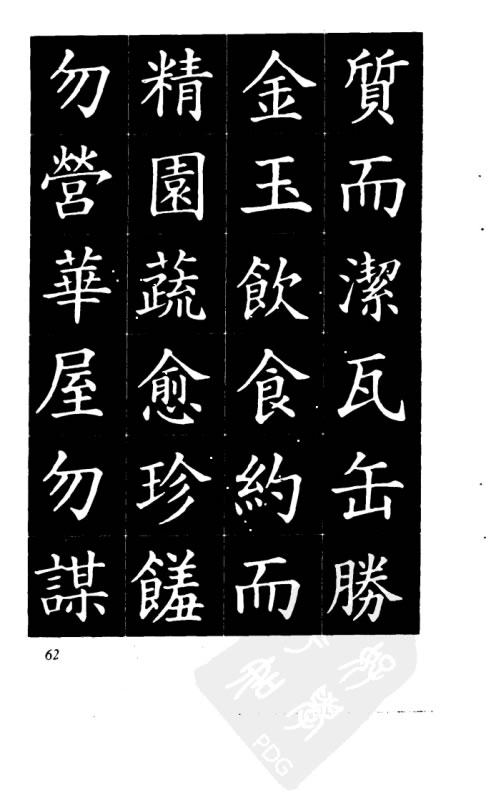 質而潔瓦缶勝
金玉飲食約而
精園蔬愈珍饈
勿營華屋勿謀
62
PDG